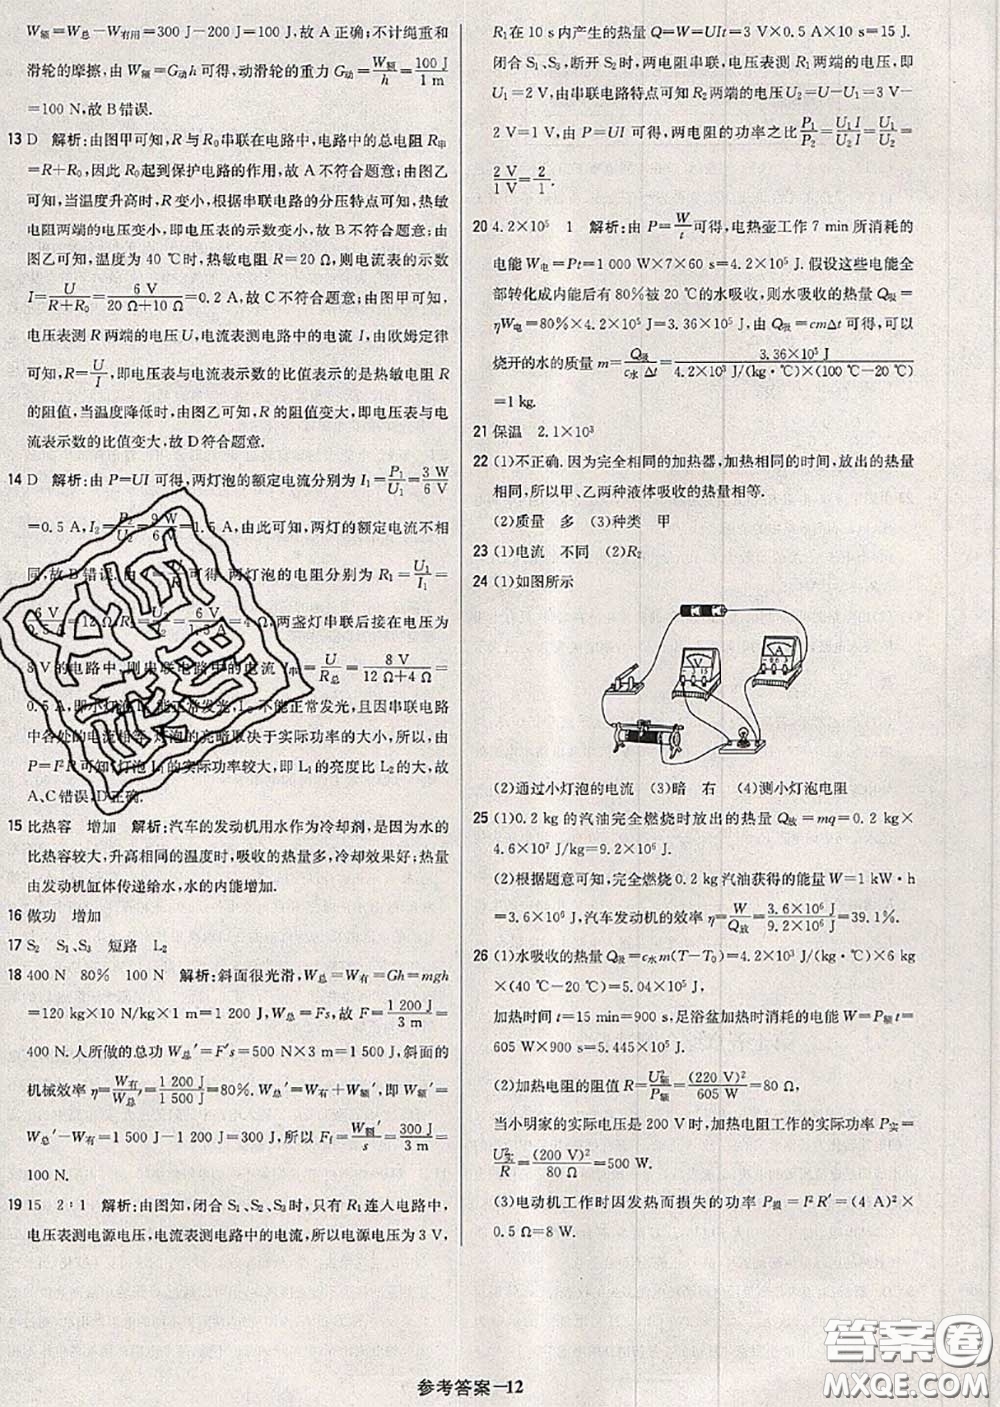 W额=W总-W有用=300 J-200 J=100 J,故 A 正确;不计绳重和
滑轮的摩擦,由 W额=G动h 可得,动滑轮的重力 G动=W额/h=100 J/1 m
=100 N,故 B 错误.
13 D 解析:由图甲可知,R 与 R0 串联在电路中,电路中的总电阻 R串
=R+R0,因此 R0 起到保护电路的作用,故 A 不符合题意;由图乙
可知,当温度升高时,R 变小,根据串联电路的分压特点可知,热敏
电阻两端的电压变小,即电压表的示数变小,故 B 不符合题意;由
图乙可知,温度为 40 ℃时,热敏电阻 R=20 Ω,则电流表的示数
I=U/(R+R0)=6 V/(20 Ω+10 Ω)=0.2 A,故 C 不符合题意;由图甲可知,
电压表测 R 两端的电压 U,电流表测电路中的电流 I,由欧姆定律
可知,R=U/I,即电压表与电流表示数的比值表示的是热敏电阻 R
的阻值,当温度降低时,由图乙可知,R 的阻值变大,即电压表与电
流表示数的比值变大,故 D 符合题意.
14 D 解析:由 P=UI 可得,两灯泡的额定电流分别为 I1=P1/U1=3 W/6 V
=0.5 A,I2=P2/U2=9 W/6 V=1.5 A,由此可知,两灯的额定电流不相
同,故 B 错误.由 可得,两灯泡的电阻分别为 R1=U1/I1=
6 V/0.5 A=12 Ω,R2=U2/I2=6 V/1.5 A=4 Ω,两盏灯串联后接在电压为
8 V 的电路中,则串联电路中的电流 =U/R总=8 V/(12 Ω+4 Ω)=
0.5 A,即小灯泡 L1 能正常发光,L2 不能正常发光,且因串联电路
中各处的电流相等,灯泡的亮暗取决于实际功率的大小,所以,由
P=I²R 可知,灯泡 L1 的实际功率较大,即 L1 的亮度比 L2 的大,故
A、C 错误,D 正确.
15 比热容 增加 解析:汽车的发动机用水作为冷却剂,是因为水的
比热容较大,升高相同的温度时,吸收的热量多,冷却效果好;热量
由发动机缸体传递给水,水的内能增加.
16 做功 增加
17 S2 S1、S3 短路 L2
18 400 N 80% 100 N 解析:斜面很光滑,W总=W有=Gh=mgh
=120 kg×10 N/kg×1 m=1 200 J,W总=Fs,故 F=1 200 J/3 m=
400 N.人所做的总功 W总′=F′s=500 N×3 m=1 500 J,斜面的
机械效率 η=W有/W总′=1 200 J/1 500 J=80%.W总′=W有+W额′,即 W额′=
W总′-W有=1 500 J-1 200 J=300 J,所以 Ff=W额′/s=300 J/3 m=
100 N.
19 15 2∶1 解析:由图知,闭合 S1、S2、S3 时,只有 R1 连入电路中,
电压表测电源电压,电流表测电路中的电流,所以电源电压为 3 V,
R1 在 10 s 内产生的热量 Q=W=UIt=3 V×0.5 A×10 s=15 J.
闭合 S1、S3,断开 S2 时,两电阻串联,电压表测 R1 两端的电压,即
U1=2 V,由串联电路特点可知 R2 两端的电压 U2=U-U1=3 V-
2 V=1 V;由 P=UI 可得,两电阻的功率之比P1/P2=U1I/U2I=U1/U2=
2 V/1 V=2/1.
20 4.2×10⁵ 1 解析:由 P=W/t可得,电热壶工作 7 min 所消耗的
电能 W电=Pt=1 000 W×7×60 s=4.2×10⁵ J.假设这些电能
全部转化成内能后有 80%被 20 ℃的水吸收,则水吸收的热量 Q吸=
ηW电=80%×4.2×10⁵ J=3.36×10⁵ J,由 Q吸=cmΔt 可得,可以
烧开的水的质量 m=Q吸/(c水Δt)=3.36×10⁵ J/[4.2×10³ J/(kg·℃)×(100 ℃-20 ℃)]
=1 kg.
21 保温 2.1×10³
22 (1)不正确.因为完全相同的加热器,加热相同的时间,放出的热量
相同,所以甲、乙两种液体吸收的热量相等.
(2)质量 多 (3)种类 甲
23 (1)电流 不同 (2)R2
24 (1)如图所示
V
A
(2)通过小灯泡的电流 (3)暗 右 (4)测小灯泡电阻
25 (1)0.2 kg 的汽油完全燃烧时放出的热量 Q放=mq=0.2 kg×
4.6×10⁷ J/kg=9.2×10⁶ J.
(2)根据题意可知,完全燃烧 0.2 kg 汽油获得的能量 W=1 kW·h
=3.6×10⁶ J,汽车发动机的效率 η=W/Q放=3.6×10⁶ J/9.2×10⁶ J=39.1%.
26 (1)水吸收的热量 Q吸=c水m(T-T0)=4.2×10³ J/(kg·℃)×6 kg
×(40 ℃-20 ℃)=5.04×10⁵ J.
加热时间 t=15 min=900 s,足浴盆加热时消耗的电能 W=P额t=
605 W×900 s=5.445×10⁵ J.
(2)加热电阻的阻值 R=U额²/P额=(220 V)²/605 W=80 Ω,
当小明家的实际电压是 200 V 时,加热电阻工作的实际功率 P实=
U实²/R=(200 V)²/80 Ω=500 W.
(3)电动机工作时因发热而损失的功率 P损=I²R′=(4 A)²×
0.5 Ω=8 W.
参考答案—12
答案圈
MXQE.COM